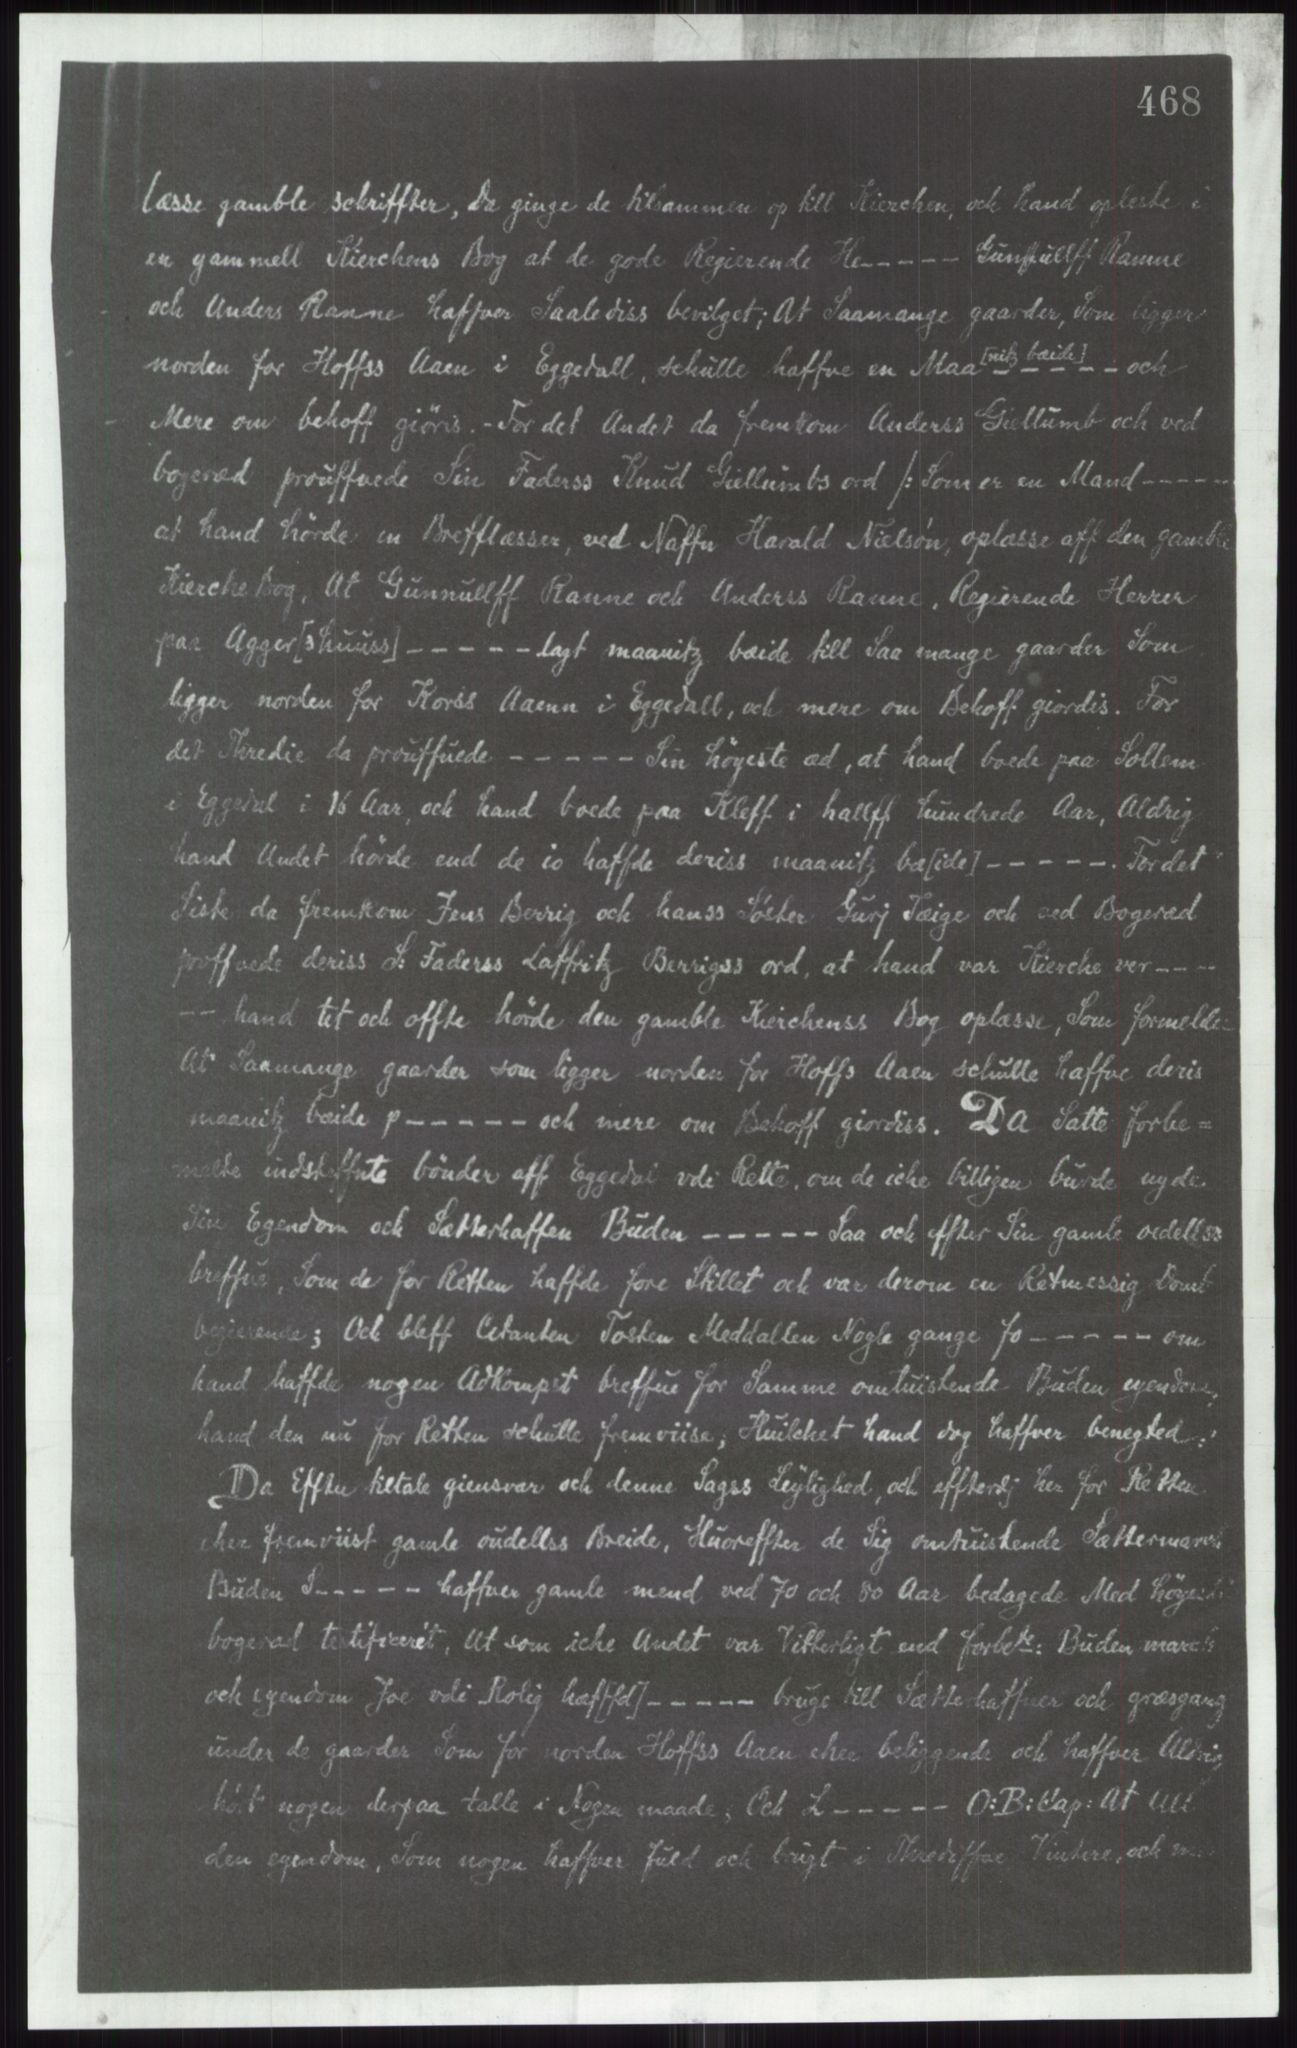 468
læsse gamble schriffter, Da ginge de tilsammen op till Kierchen, och hand opleste i
en gammell Kierchens Bog at de gode Regierende He----- Gunnullff Ranne
och Anders Ranne haffver Saalediss bevilget; At Saamange gaarder, Som ligger
norden for Hoffss Aaen i Eggedall, schulle haffve en Maa[nitz bæide]----- och
Mere om behoff giöris. - For det Andet da fremkom Anderss Giellumb och ved
bogeræd prouffvede Sin Faderss Knud Giellumbs ord /: Som er en Mand -----
at hand hörde en Brefflæsser, ved Naffn Harald Nielsön, oplæsse aff den gamble
Kierche Bog, At Gunnullff Ranne och Anderss Ranne, Regierende Herrer
paa Agger[shuuss] ----- lagt maanitz bæide till Saa mange gaarder Som
ligger norden for Korss Aaenn i Eggedall, och mere om Behoff giordis. For
det Thredie da prouffuede ----- Sin höyeste æd, at hand boede paa Sollem
i Eggedal i 16 Aar, och hand boede paa Kleff i hallff hundrede Aar, Aldrig
hand Andet hörde end de io haffde deriss maanitz bæ[ide] -----. For det
Siste da fremkom Jens Berrig och hanss Söster Gurj Tæige och ved Bogeræd
proffvede deriss S: Faderss Laffritz Berrigss ord, at hand var Kierche ver----
-- hand tit och offte hörde den gamble Kierchenss Bog oplæsse, Som formelde-
At Saamange gaarder som ligger norden for Hoffs Aaen schulle haffve deris
maanitz bæide p----- och mere om Behoff giordiss. Da Satte forbe=
melte indsteffnte bönder aff Eggedal vdi Rette, om de iche billigen burde nyde
Sin Egendom och Sætterhaffen Buden ----- Saa och effter Sin gamle oedellss
breffue, Som de for Retten haffde fore Stillet och var derom en Retmessig Domb
begierende; Och bleff Citanten Tosten Meddallen Nogle gange fo----- om
hand haffde nogen Adkompst breffue for Samme omtuistende Buden eyendom,
hand den nu for Retten schulle fremviise; Huilchet hand dog haffver benegted:
Da Effter tiltale giensvar och denne Sagss Leylighed, och effterdj her for Retten
eher fremviist gamle oudellss Breide, Huoreffter de Sig omtuistende Sættermarch
Buden S----- haffver gamle mend ved 70 och 80 Aar bedagede Med höyeste
bogeræd testificerét, At som iche Andet var Vitterligt end forbete: Buden march
och eyendom Joe vdi Rolig hæf[fd] ----- bruge till Sætterhaffner och græsgang
under de gaarder Som for norden Hoffss Aaen eher beliggende och haffver Aldrig
hört nogen derpaa talle i Nogen maade; Och L----- O:B: Cap: At All
den eyendom, Som nogen haffver fuld och brugt i Threдiffue Vintere, och